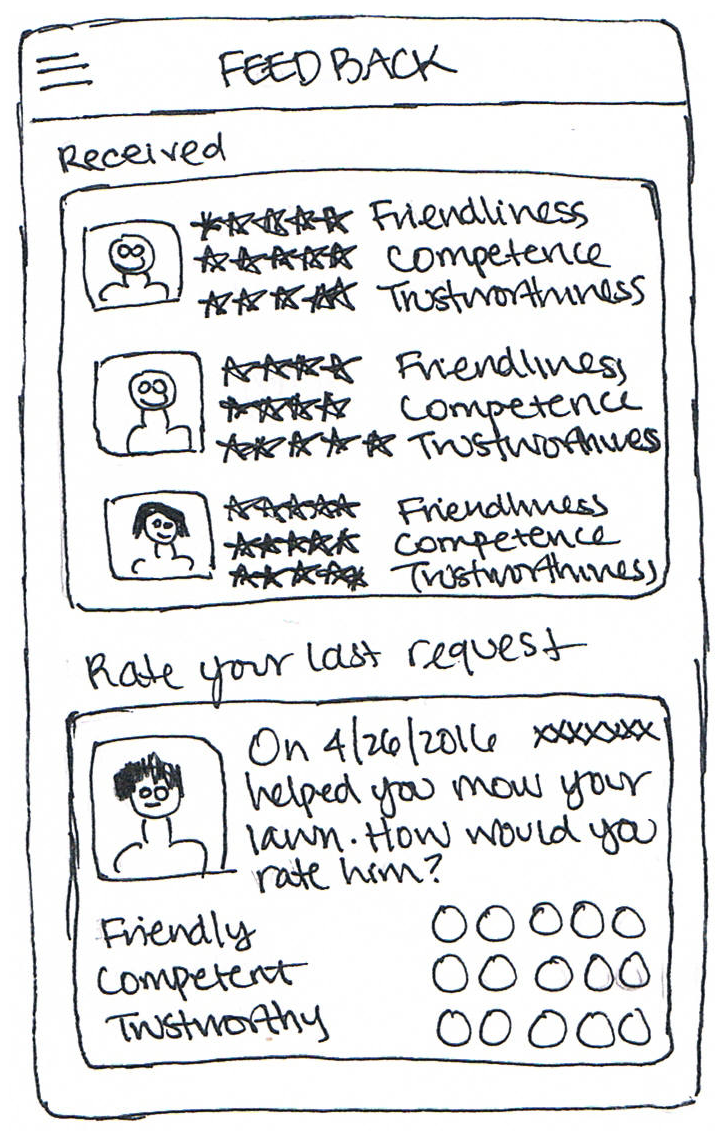 FEEDBACK
Received
Friendliness
Competence
Trustworthiness
Friendliness
Competence
Trustworthines
Friendliness
Competence
Trustworthiness
Rate your last request
On 4/26/2016 xxxxxxx
helped you mow your
lawn. How would you
rate him?
Friendly
Competent
Trustworthy